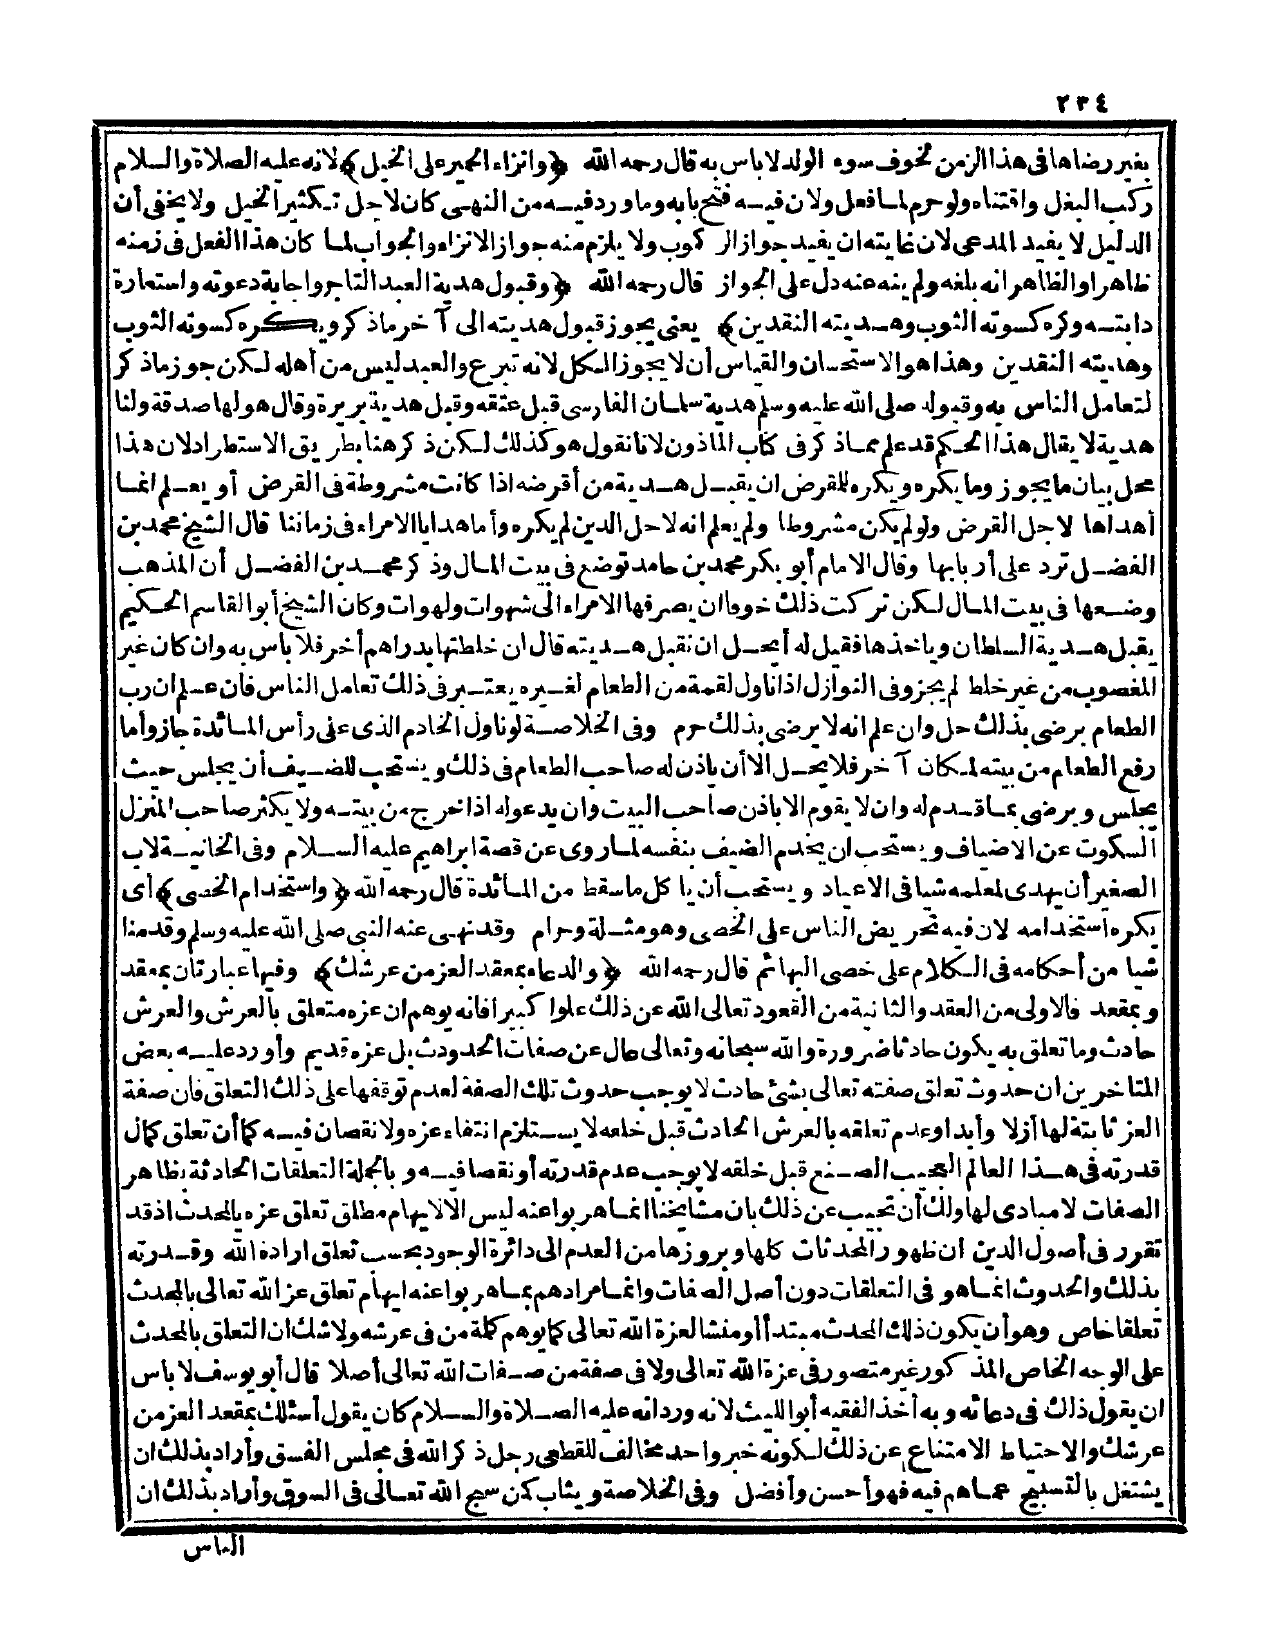 ٢٣٤
بغير رضاها فى هذا الزمن لخوف سوء الولد لا باس به قال رحمه الله ﴿وانزاء الحمير على الخيل﴾ لانه عليه الصلاة والسلام
ركب البغل واقتناه ولو حرم لما فعل ولان فيه فتح بابه وما ورد فيه من النهى كان لاجل تكثير الخيل ولا يخفى أن
الدليل لا يفيد المدعى لان غايته ان يفيد جواز الركوب ولا يلزم منه جواز الانزاء والجواب لما كان هذا الفعل فى زمنه
ظاهرا والظاهر انه بلغه ولم ينه عنه دل على الجواز قال رحمه الله ﴿وقبول هدية العبد التاجر واجابة دعوته واستعارة
دابته وكره كسوته الثوب وهديته النقدين﴾ يعنى يجوز قبول هديته الى آخر ماذكر ويكره كسوته الثوب
وهديته النقدين وهذا هو الاستحسان والقياس أن لا يجوز الكل لانه تبرع والعبد ليس من أهله لكن جوز ماذكر
لتعامل الناس به وقبوله صلى الله عليه وسلم هدية سلمان الفارسى قبل عتقه وقبل هدية بريرة وقال هو لها صدقة ولنا
هدية لا يقال هذا الحكم قد علم مما ذكر فى كتاب الماذون لانا نقول هو كذلك لكن ذكر هنا بطريق الاستطراد لان هذا
محل بيان ما يجوز وما يكره ويكره للقرض ان يقبل هدية من أقرضه اذا كانت مشروطة فى القرض أو يعلم انما
أهداها لاجل القرض ولو لم يكن مشروطا ولم يعلم انه لاجل الدين لم يكره وأما هدايا الامراء فى زماننا قال الشيخ محمد بن
الفضل ترد على أربابها وقال الامام أبو بكر محمد بن حامد توضع فى بيت المال وذكر محمد بن الفضل أن المذهب
وضعها فى بيت المال لكن تركت ذلك خوفا ان يصرفها الامراء الى شهوات ولهوات وكان الشيخ أبو القاسم الحكيم
يقبل هدية السلطان وياخذها فقيل له أيحل ان نقبل هديته قال ان خلطتها بدراهم أخر فلا باس به وان كان غير
المغصوب من غير خلط لم يجز وفى النوازل اذا ناول لقمة من الطعام لغيره يعتبر فى ذلك تعامل الناس فان علم ان رب
الطعام يرضى بذلك حل وان علم انه لا يرضى بذلك حرم وفى الخلاصة لو ناول الخادم الذى على رأس المائدة جاز وأما
رفع الطعام من بيته لمكان آخر فلا يحل الا أن ياذن له صاحب الطعام فى ذلك ويستحب للضيف أن يجلس حيث
يجلس ويرضى بما قدم له وان لا يقوم الا باذن صاحب البيت وان يدعو له اذا خرج من بيته ولا يكثر صاحب المنزل
السكوت عن الاضياف ويستحب ان يخدم الضيف بنفسه لما روى عن قصة ابراهيم عليه السلام وفى الخانية لاب
الصغير أن يهدى لمعلمه شيا فى الاعياد ويستحب أن ياكل ما سقط من المائدة قال رحمه الله ﴿واستخدام الخصى﴾ أى
يكره استخدامه لان فيه تحريض الناس على الخصى وهو مثلة وحرام وقد نهى عنه النبى صلى الله عليه وسلم وقدمنا
شيا من أحكامه فى الكلام على خصى البهائم قال رحمه الله ﴿والدعاء بمعقد العز من عرشك﴾ وفيها عبارتان بمعقد
وبمقعد فالاولى من العقد والثانية من القعود تعالى الله عن ذلك علوا كبيرا فانه يوهم ان عزه متعلق بالعرش والعرش
حادث وما تعلق به يكون حادثا ضرورة والله سبحانه وتعالى حال عن صفات الحدوث بل عزه قديم وأورد عليه بعض
المتاخرين ان حدوث تعلق صفته تعالى بشئ حادث لا يوجب حدوث تلك الصفة لعدم توقفها على ذلك التعلق فان صفة
العز ثابتة لها أزلا وأبدا وعدم تعلقه بالعرش الحادث قبل خلعه لا يستلزم انتفاء عزه ولا نقصان فيه كما أن تعلق كمال
قدرته فى هذا العالم العجيب الصنع قبل خلقه لا يوجب عدم قدرته أو نقصا فيه وبالجملة التعلقات الحادثة بظاهر
الصفات لا مبادى لها ولك أن تجيب عن ذلك بان مشايخنا انما هربوا عنه ليس الا لايهام مطلق تعلق عزه بالمحدث اذ قد
تقرر فى أصول الدين ان ظهور المحدثات كلها وبروزها من العدم الى دائرة الوجود بحسب تعلق ارادة الله وقدرته
بذلك والحدوث انما هو فى التعلقات دون أصل الصفات وانما مرادهم بما هربوا عنه ايهام تعلق عز الله تعالى بالمحدث
تعلقا خاص وهو أن يكون ذلك المحدث مبتدأ أو منشا لعزة الله تعالى كما يوهم كلة من فى عرشه ولا شك ان التعلق بالمحدث
على الوجه الخاص المذكور غير متصور فى عزة الله تعالى ولا فى صفة من صفات الله تعالى أصلا قال أبو يوسف لا باس
ان يقول ذلك فى دعائه وبه أخذ الفقيه أبو الليث لانه ورد انه عليه الصلاة والسلام كان يقول أسئلك بمقعد العز من
عرشك والاحتياط الامتناع عن ذلك لكونه خبر واحد مخالف للقطعى رجل ذكر الله فى مجلس الفسق وأراد بذلك ان
يشتغل بالتسبيح عما هم فيه فهو أحسن وأفضل وفى الخلاصة ويثاب كمن سبح الله تعالى فى السوق وأراد بذلك ان
الناس